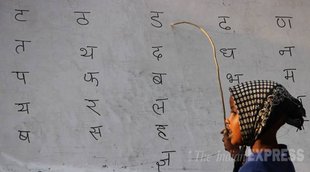 ट ठ ड ढ ण
त थ द ध न
प फ ब भ म
य र ल
ष स ह
The Indian EXPRESS